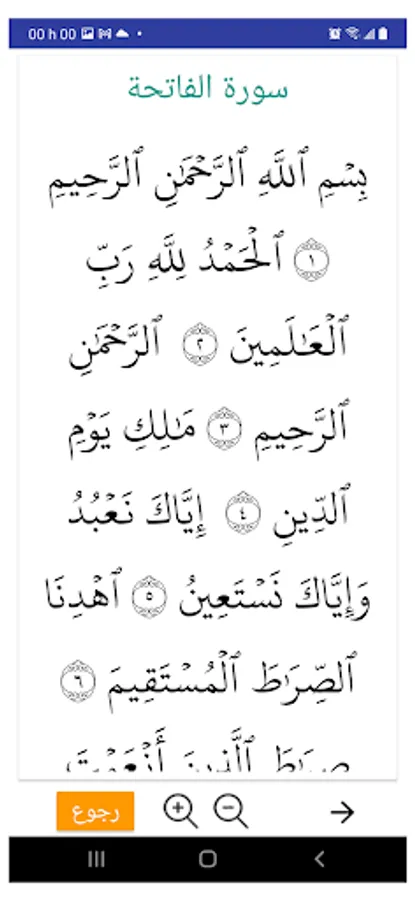 00 h 00
سورة الفاتحة
بِسْمِ ٱللَّهِ ٱلرَّحْمَٰنِ ٱلرَّحِيمِ
١ ٱلْحَمْدُ لِلَّهِ رَبِّ
ٱلْعَٰلَمِينَ ٢ ٱلرَّحْمَٰنِ
ٱلرَّحِيمِ ٣ مَٰلِكِ يَوْمِ
ٱلدِّينِ ٤ إِيَّاكَ نَعْبُدُ
وَإِيَّاكَ نَسْتَعِينُ ٥ ٱهْدِنَا
ٱلصِّرَٰطَ ٱلْمُسْتَقِيمَ ٦
صِرَٰطَ ٱلَّذِينَ أَنْعَمْتَ
رجوع